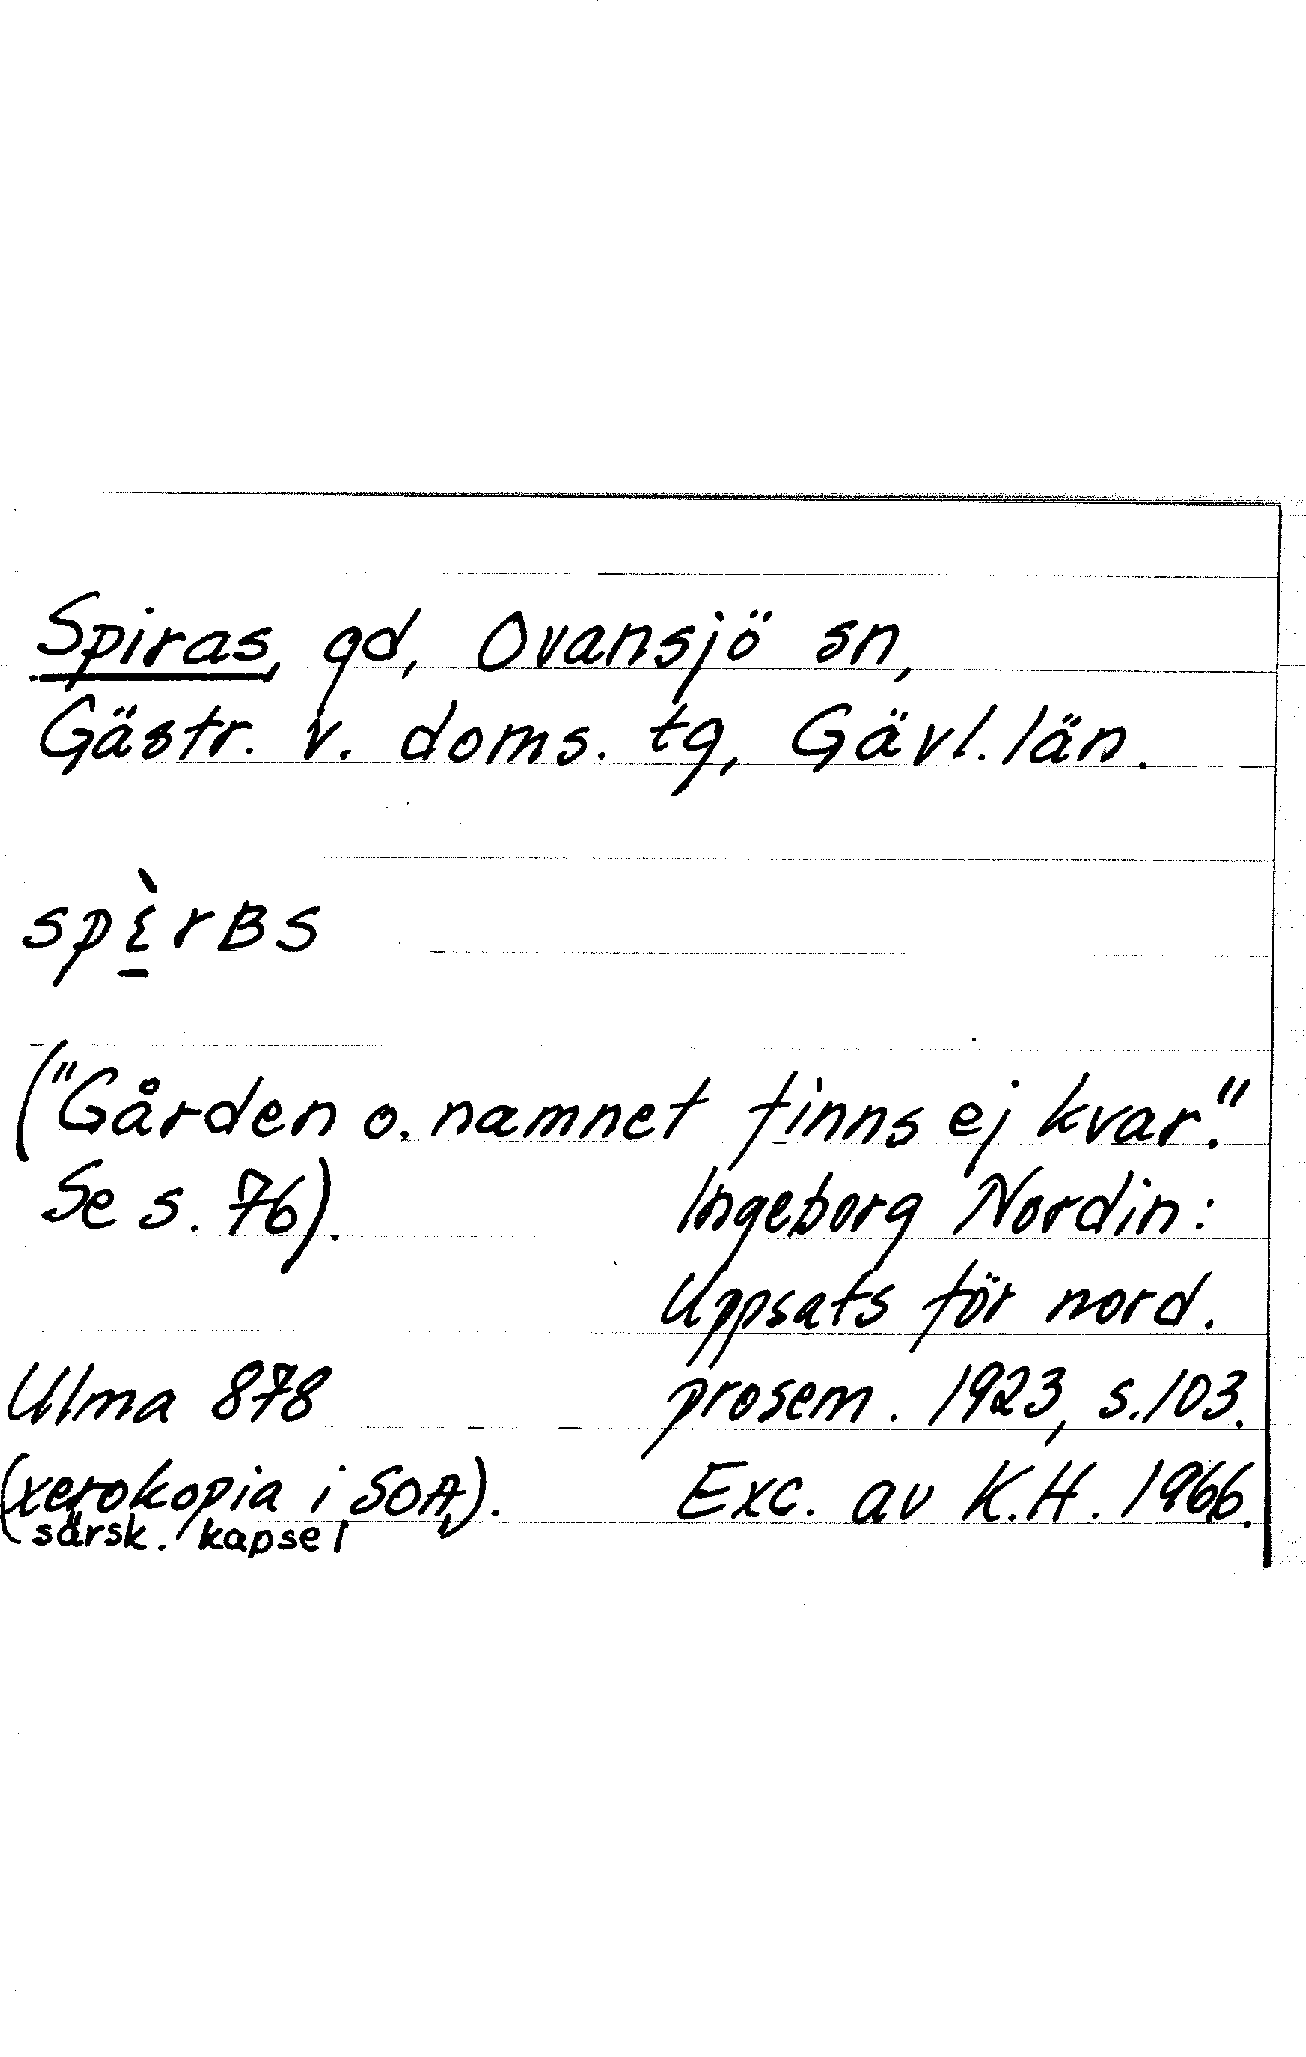 Spiras, gd, Ovansjö sn,
Gästr. v. doms. tg, Gävl. län.
spὶ̱rʙs
("Gården o. namnet finns ej kvar."
Se s. 76).
Ingeborg Nordin:
Uppsats för nord.
prosem. 1923, s. 103.
Ulma 878
(xerokopia i SOA).
särsk. kapsel
Exc. av K.H. 1966.